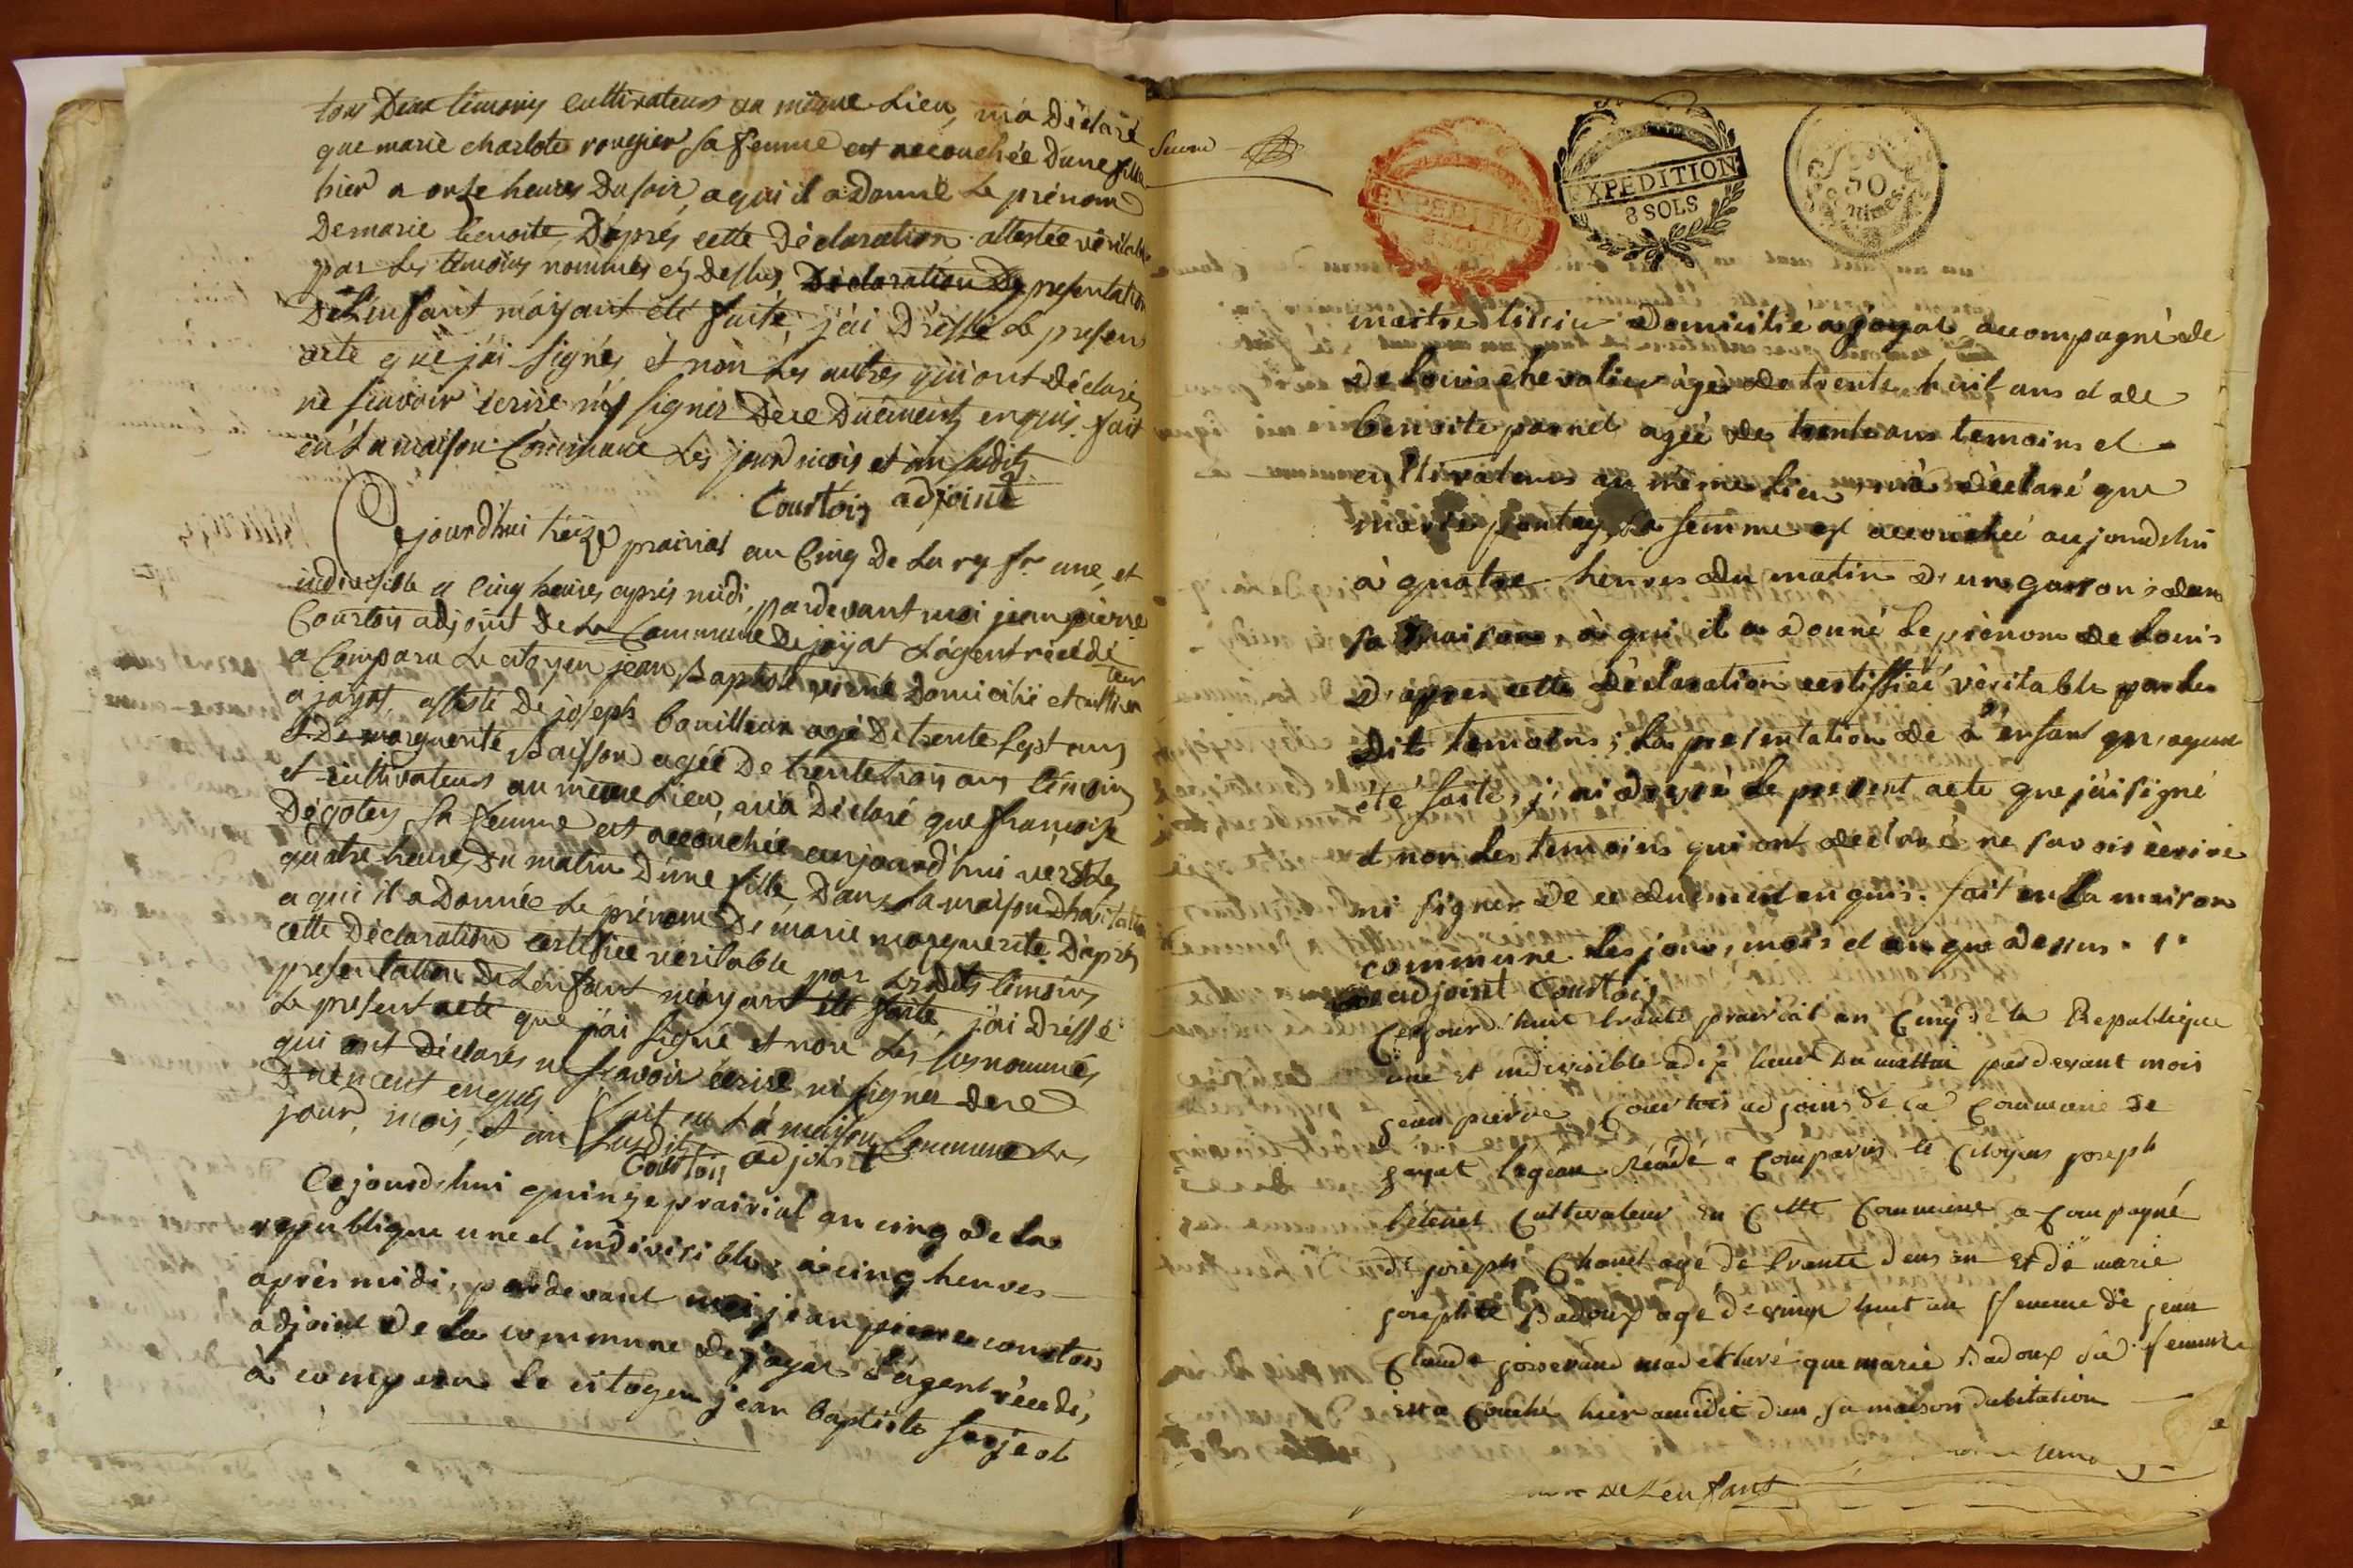 tous Deux témoins cultivateurs au même Lieu, m'a Déclaré
que marie charlote rougier sa femme est accouchée D'une fille
hier a onze heures Du soir, a qui il a Donné Le prénom
De marie benoite, D'après cette Déclaration attestée véritable
par Les témoins nommés cy Dessus, Déclaration De presentation
De L'enfant m'ayant été faite, j'ai Dressé Le presen
acte que j'ai signé, et non Les autres qui ont Déclaré
ne scavoir écrire ny signer De ce Duement enquis. fait
en La maison Commune Les jour mois et an susdits
Courtois adjoint
Cejourd'hui treize prairial an Cinq De La rep fr. une, et
indivisible a Cinq heures après midi, pardevant moi jean pierre
Courtois adjoint De La Commune De jayat L'agent récédé
a Comparu Le citoyen jean Baptiste Domicilié et cultiva
teur
a jayat, assisté De joseph bouilleux agé De trente sept ans
et De marguerite Buisson agée De trente trois ans témoins
et cultivateurs au même Lieu, m'a Déclaré que françoise
Dégoley sa femme est accouchée aujourd'hui vers Les
quatre heures Du matin D'une fille, Dans La maison D'habitation
a qui il a Donnée Le prénom De marie marguerite. D'après
cette Déclaration certifiée véritable par Lesdits témoins
presentation De L'enfant m'ayant été faite, j'ai Dressé
Le present acte que j'ai signé et non Les susnommés
qui ont Déclarés ne scavoir écrire ni signer De ce
Duement enquis. fait en La maison Commune Les
jour, mois, et an susdits
Courtois adjoint
Cejourd'hui quinze prairial an cinq de la
republique une et indivisible, à cinq heures
après midi, pardevant moi jean pierre courtois
adjoint de la commune de jayat L'agent récédé,
à comparu le citoyen jean baptiste
EXPEDITION
EXPEDITION
8 SOLS
50
Centimes
maitre domicilié a jayat accompagné de
de louis chevalier âgé de trente huit ans et de
benoite pannet agée de trente ans temoins et
cultivateurs au même Lieu, m'a déclaré que
marie sa femme est accouchée aujourdhui
à quatre heures du matin d'un garson dans
sa maison, à qui il a donné le prénom de louis
D'apprès cette déclaration certiffiéé vèritable par les
Dits temoins; La presentation de L'enfant m'ayant
été faite, j'ai dressé le present acte que j'ai signé
et non les temoins qui ont déclaré ne savoir écrire
ni signer de ce duement enquis. fait en la maison
commune les jour, mois et an que dessus.
adjoint Courtois
Cejour d'huit trante prairial an Cinq de la Republique
une et indivisible a dix heur du mattin pardevant mois
jean pierre Courtois adjoins de la Commune de
jayat lagean récédé a Comparus le Citoyen joseph
Cultivateur en Cette Commune a Compagné
de joseph Chanel agé de trante deus an et de marie
josephte Badoux agé de vingt huit an femme de jean
Claude mad eklaré que marie Badoux sa femme
est a Couché hier a midit dan sa maison dabitation
de L'enfant